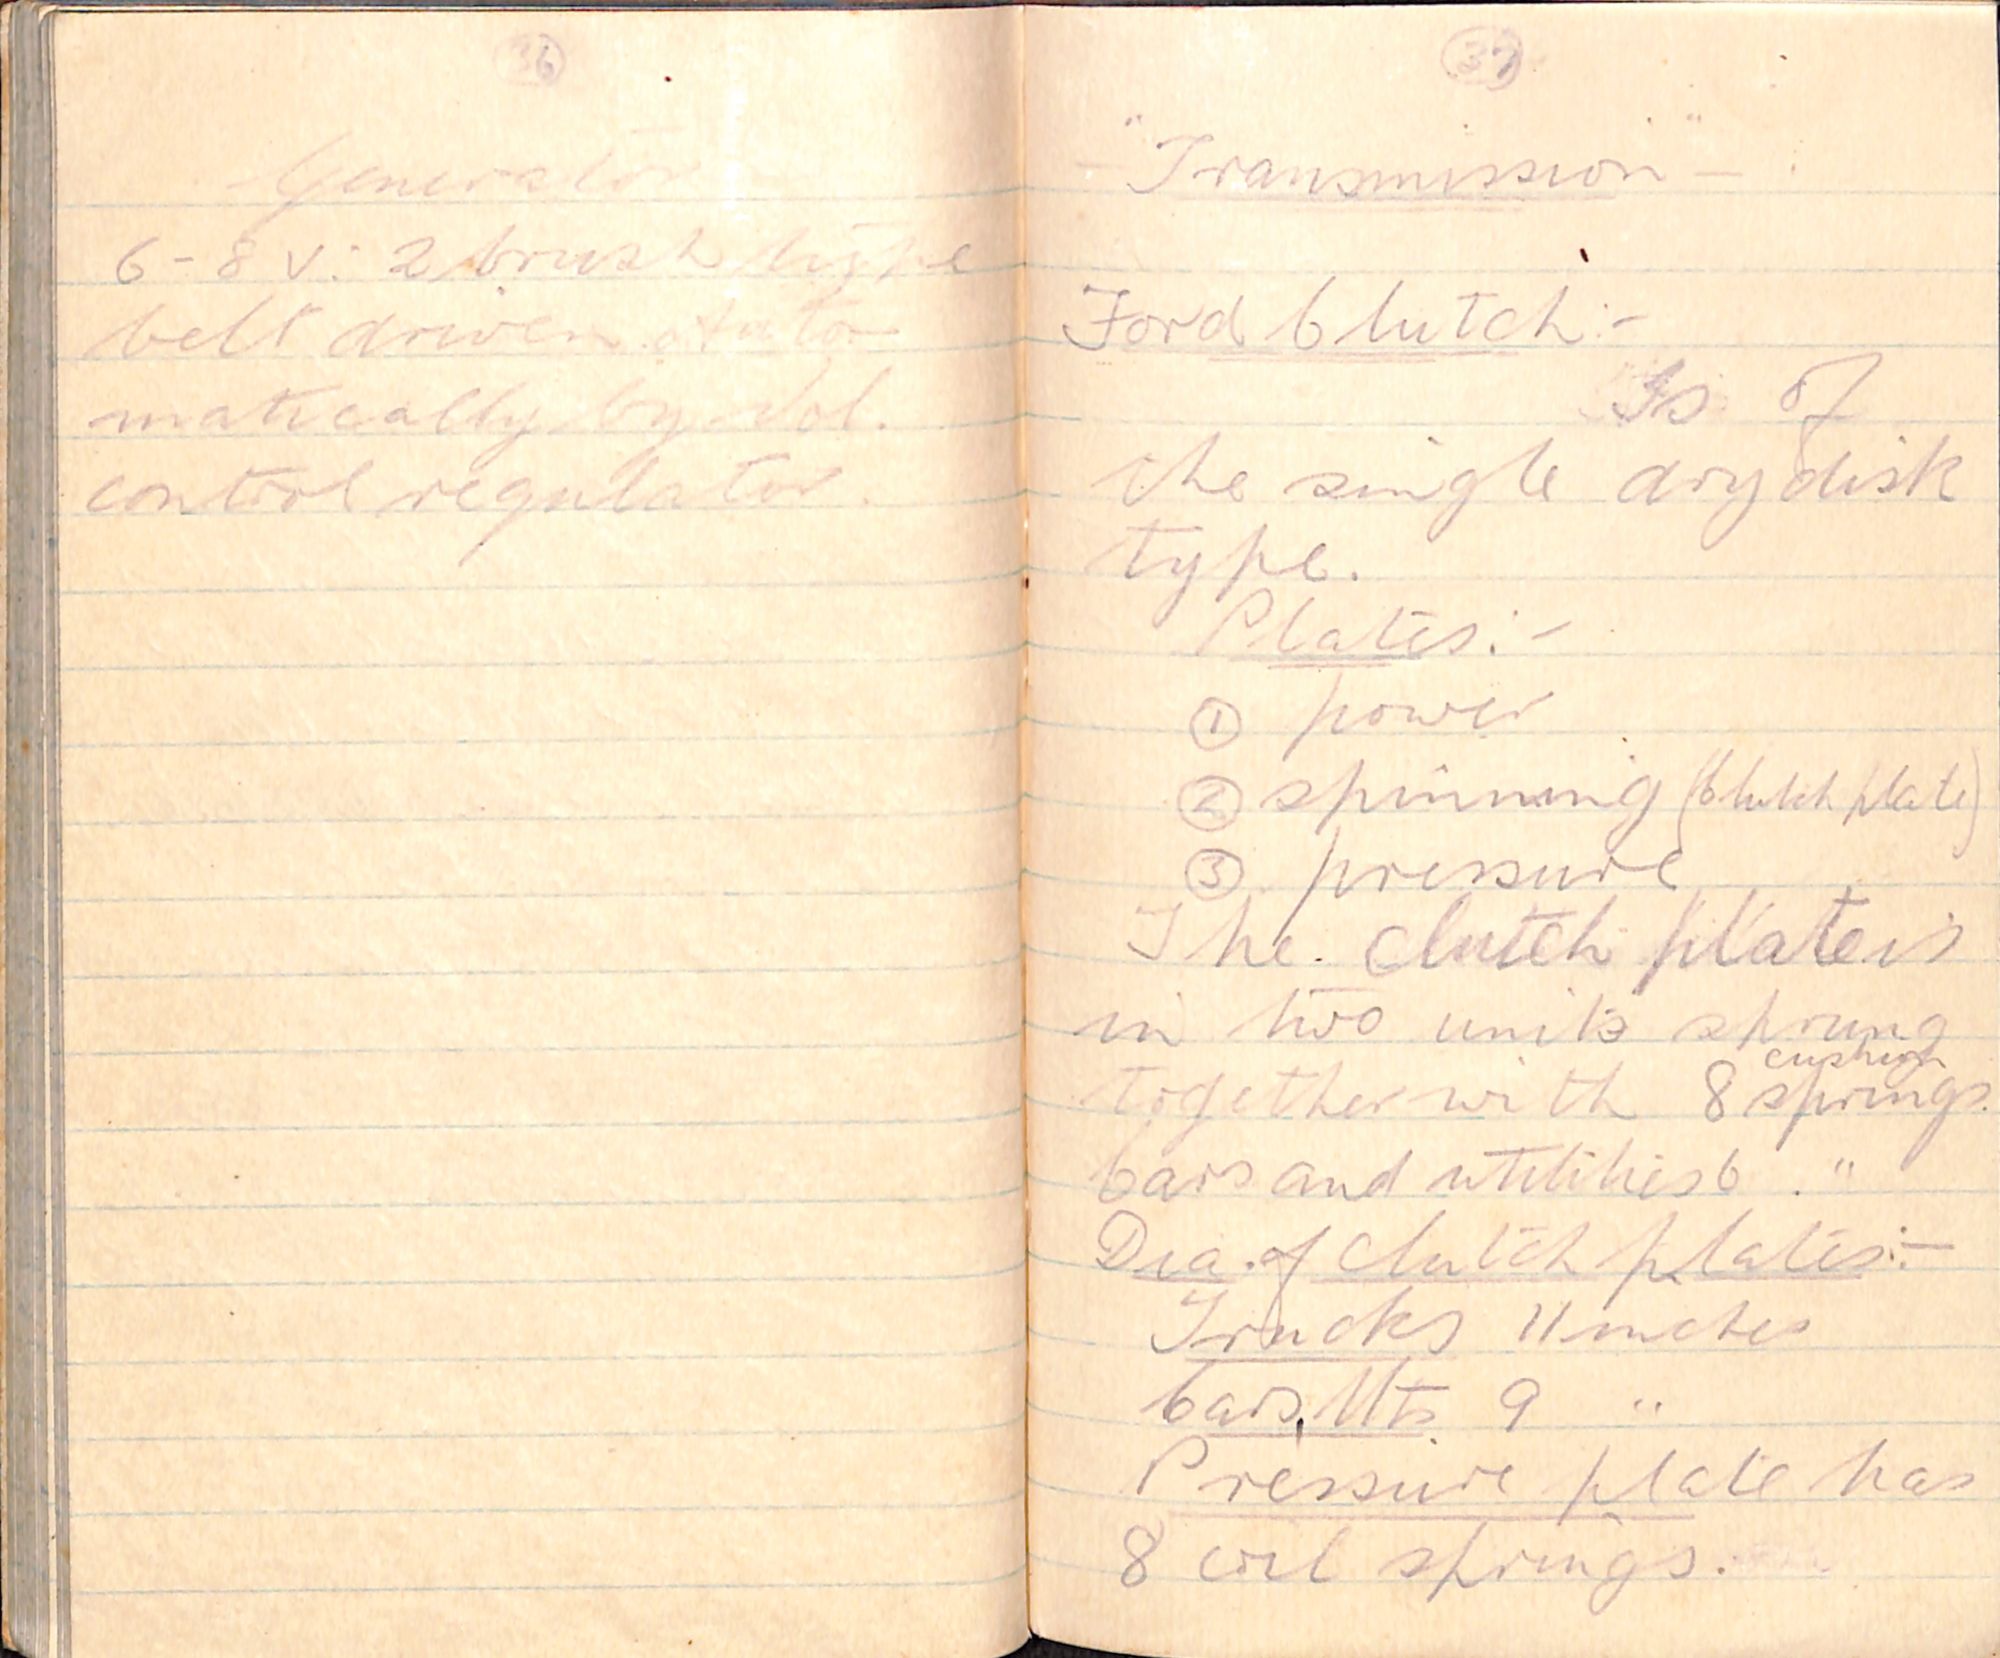 36
Generator
6-8 v: 2 brush type
belt driven auto
matically by Vol.
control regulator.
37
- "Transmission" -
Ford Clutch:-
Is of
the single dry disk
type.
Plates:-
① power
② spinning (Clutch plate)
③ pressure
The clutch plate is
in two units sprung
cushion
together with 8 springs.
Cars and utilities 6 "
Dia. of clutch plates:-
Trucks 11 inches
Cars, Uts 9 "
Pressure plate has
8 coil springs.